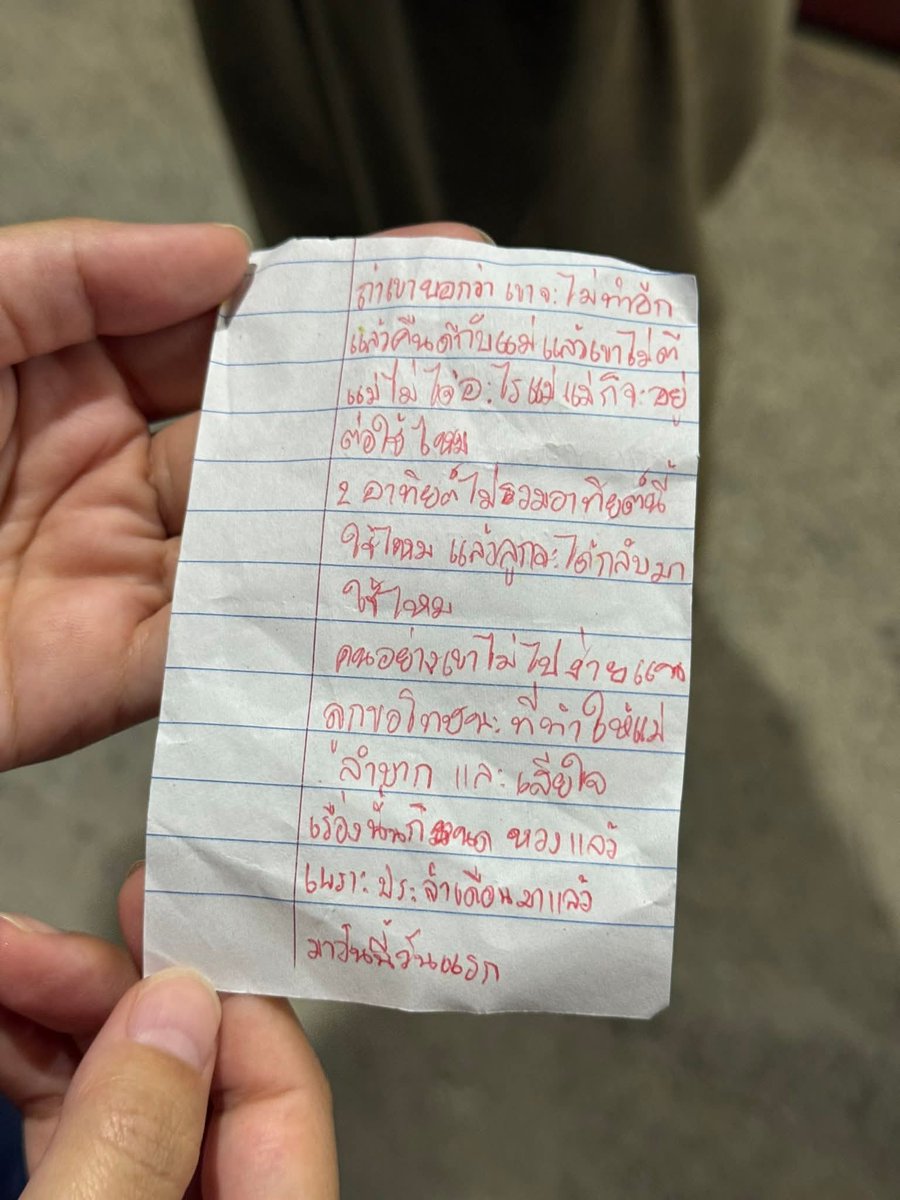 ถ้าเขาบอกว่า เขาจะไม่ทำอีก
แล้วคืนดีกับแม่ แล้วเขาไม่ตี
แม่ไม่ อะไรแม่ แม่ก็จะอยู่
ต่อใช้ไหม
2 อาทิตย์ไม่รวมอาทิตย์นี้
ใช้ไหม แล้วลูกจะได้กลับมา
ใช้ไหม
คนอย่างเขาไม่ไป ง่าย
ลูกขอโทษนะ ที่ทำให้แม่
ลำบาก และ เสียใจ
เรื่องนั้นก็ หวงแลว้
เพราะ ประจำเดือนมาแลว้
มาวันนี้วันแรก